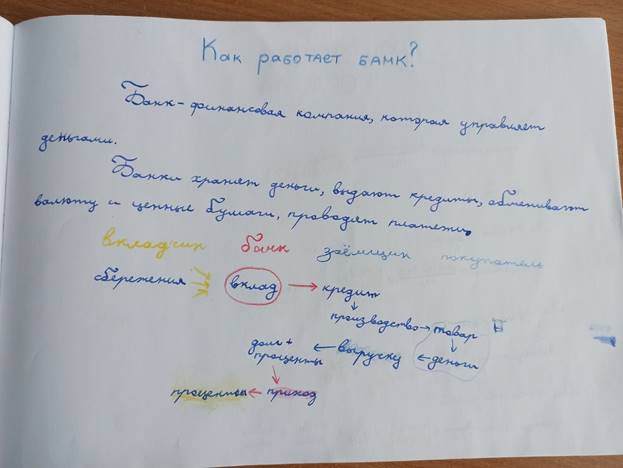 Как работает банк?
Банк - финансовая компания, которая управляет
деньгами.
Банки хранят деньги, выдают кредиты, обменивают
валюту и ценные бумаги, проводят платежи.
вкладчик банк заёмщик покупатель
сбережения вклад → кредит
↓
производство → товар
↓
долг + проценты ← выручку ← деньги
↓
проценты ← приход